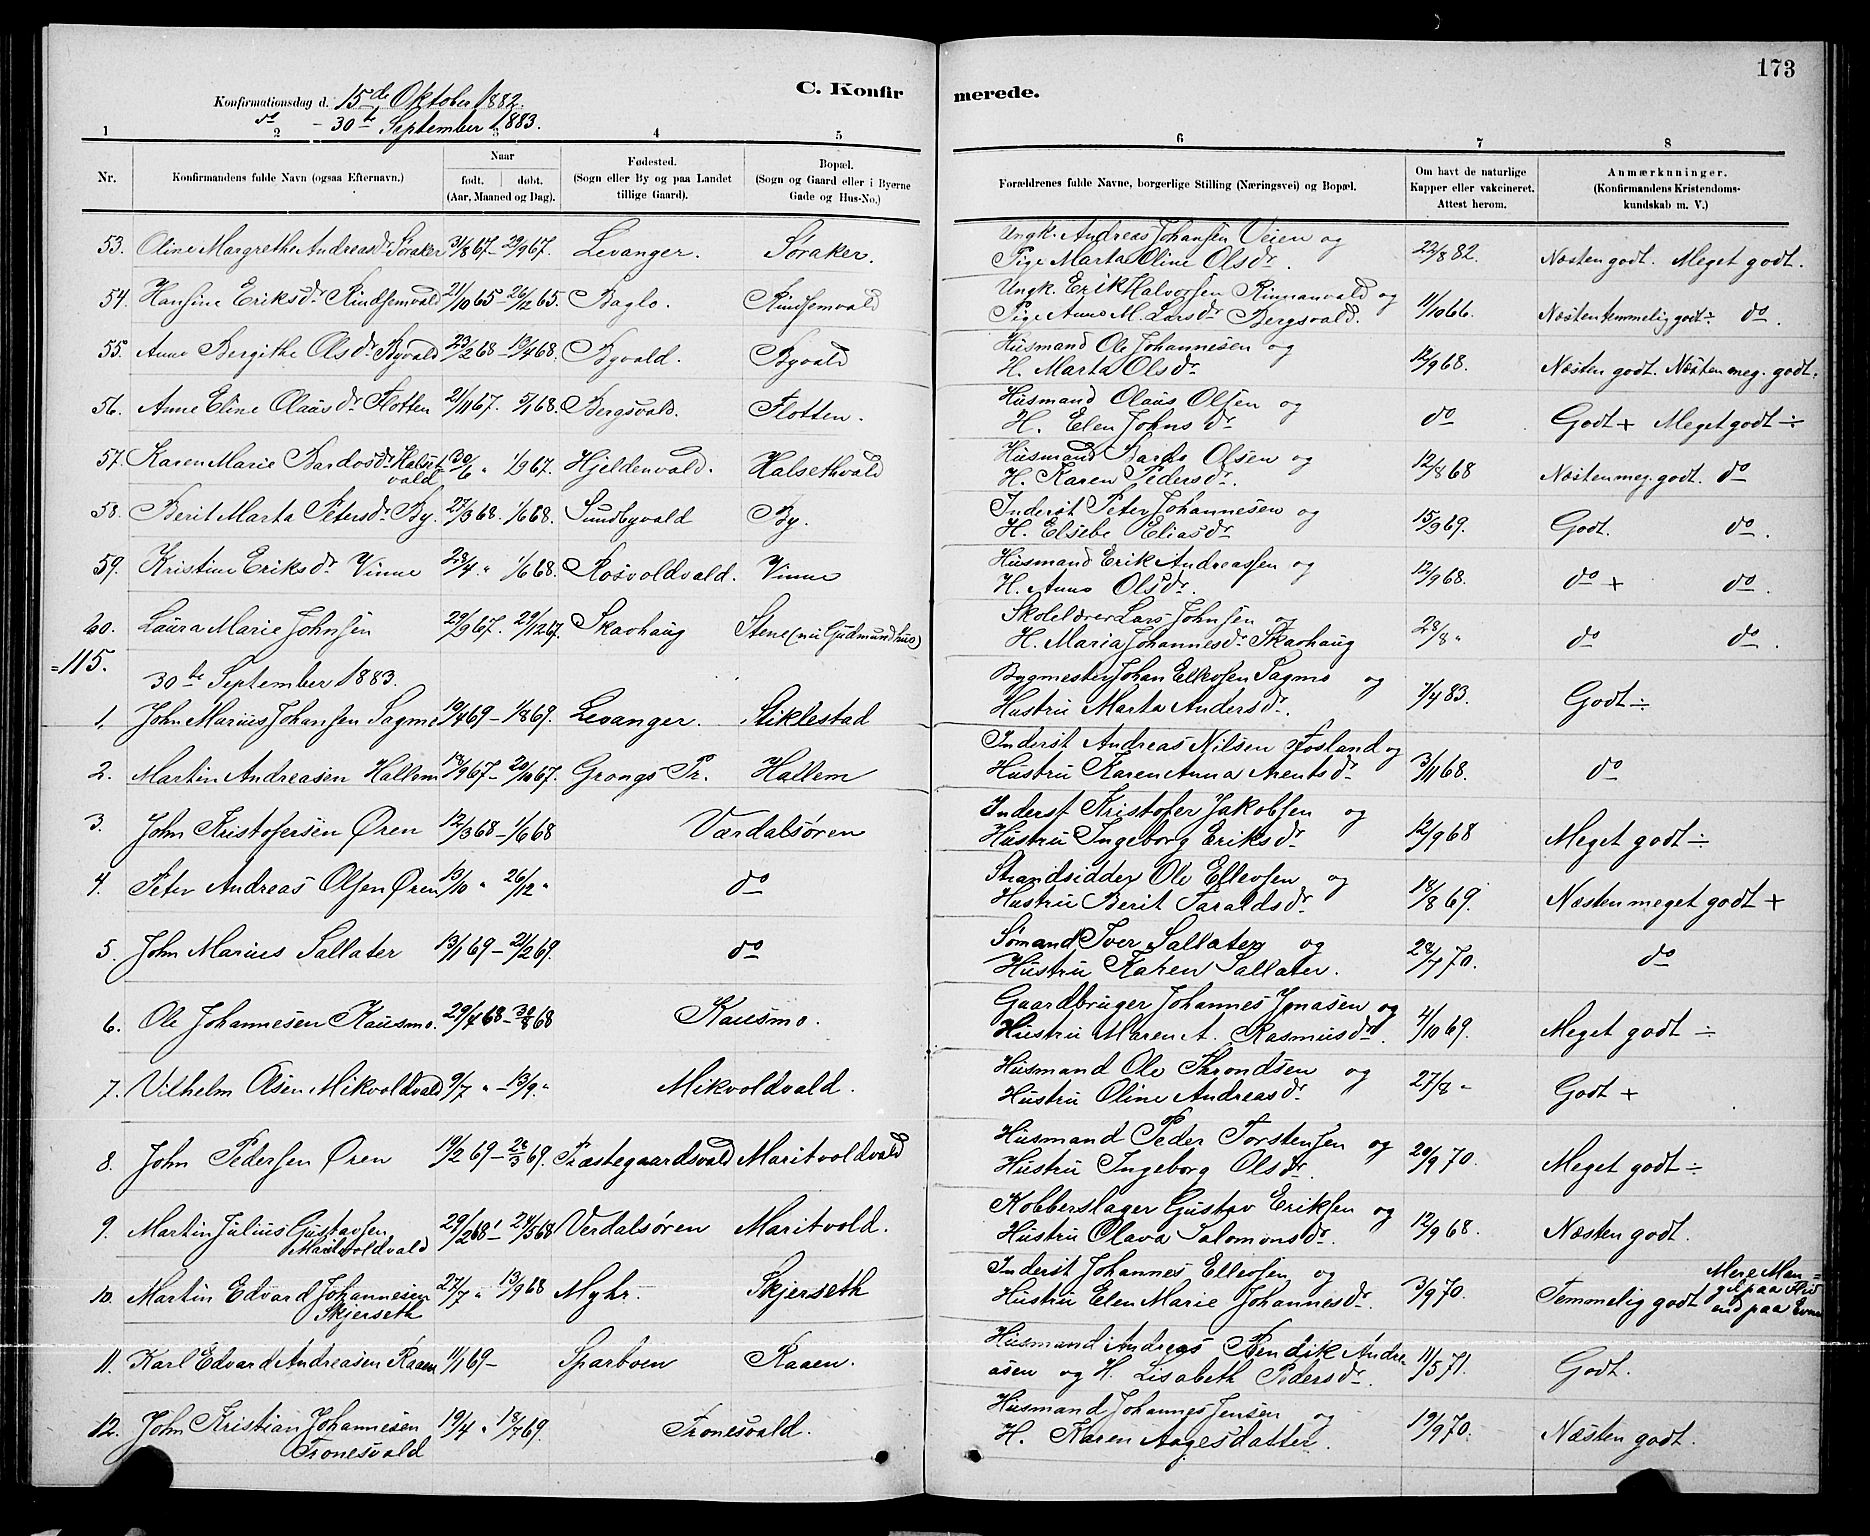 173
C. Konfirmerede.
Konfirmationsdag d. 15de Oktober 1882.
do - 30te September 1883.
1 2 3 4 5 6 7 8
Nr. Konfirmandens fulde Navn (ogsaa Efternavn.) Naar født. døbt. (Aar, Maaned og Dag). Fødested. (Sogn eller By og paa Landet tillige Gaard). Bopæl. (Sogn og Gaard eller i Byerne Gade og Hus-No.) Forældrenes fulde Navne, borgerlige Stilling (Næringsvei) og Bopæl. Om havt de naturlige Kapper eller vakcineret. Attest herom. Anmærkninger. (Konfirmandens Kristendomskundskab m. V.)
53. Oline Margrethe Andreasdr Søraker 31/8 67 - 29/9 67. Levanger. Søraker. Ungk. Andreas Johansen Veien og
Pige Marta Oline Olsdr. 22/8 82. Næsten godt. Meget godt.
54. Hansine Eriksdr Rindsemvald 21/10 65 - 26/12 65. Baglo. Rindsemvald Ungk. Erik Halvorsen Rinnanvald og
Pige Anne M. Larsdr Bergsvald. 11/10 66. Næsten temmelig godt ÷ do.
55. Anne Bergithe Olsdr Byvald 23/2 68 - 13/4 68. Byvald. Byvald Husmand Ole Johannesen og
H. Marta Olsdr 12/9 68. Næsten godt. Næsten meg. godt.
56. Anne Eline Olausdr Flotten 21/11 67. 5/1 68. Bergsvald. Flotten. Husmand Olaus Olsen og
H. Elen Johnsdr do Godt + Meget godt ÷
57. Karen Marie Bardosdr Halset
vald 30/6 " 1/9 67. Hjeldenvald. Halsethvald Husmand Bardo Olsen og
H. Karen Pedersdr. 12/8 68 Næsten meg. godt. do
58. Berit Marta Petersdr By. 27/3 68. 1/6 68. Sundbyvald By. Inderst Peter Johannesen og
H. Elsebe Eliasdr 15/9 69. Godt. do.
59. Kristine Eriksdr Vinne 28/4 " 1/6 68. Rosvoldvald. Vinne Husmand Erik Andreassen og
H. Anne Olsdr. 12/9 68. do + do.
60. Laura Marie Johnsen 29/9 67. 29/12 67. Skavhaug Stene (nu Gudmundhus) Skolelærer Lars Johnsen og
H. Maria Johannesdr Skavhaug 28/8 " do do.
=115.
30te September 1883.
1. John Marius Johansen Sagmo 10/4 69 - 1/8 69. Levanger. Stiklestad Bygmester Johan Ellevsen Sagmo og
Hustru Marta Andersdr. 7/4 83. Godt ÷
2. Martin Andreasen Hallem 18/9 67 - 20/10 67. Grongs Pr. Hallem Inderst Andreas Nilsen Fosland og
Hustru Karen Anna Arentsdr 3/11 68. do
3. John Kristofersen Øren 12/3 68 - 1/6 68 Værdalsøren Inderst Kristofer Jakobsen og
Hustru Ingeborg Eriksdr 12/9 68 Meget godt ÷
4. Peter Andreas Olsen Øren 13/10 " 26/12 " do Strandsidder Ole Ellevsen og
Hustru Berit Taraldsdr 18/8 69. Næsten meget godt +
5. John Marius Sallater 13/1 69 - 21/2 69. do Sømand Iver Sallater og
Hustru Karen Sallater. 28/7 70. do
6. Ole Johannesen Kausmo. 29/7 68 - 30/8 68 Kausmo. Gaardbruger Johannes Jonasen og
Hustru Maren A. Rasmusdr. 4/10 69. Meget godt ÷
7. Vilhelm Olsen Mikvoldvald 9/7 " - 13/9 " Mikvoldvald. Husmand Ole Throndsen og
Hustru Oline Andreasdr 27/8 " Godt +
8. John Pedersen Øren 19/2 69 - 28/3 69. Præstegaardsvald Maritvoldvald Husmand Peder Torstensen og
Hustru Ingeborg Olsdr. 20/9 70. Meget godt ÷
9. Martin Julius Gustavsen
Maritvoldvald 29/2 68 - 24/5 68 Verdalsøren Maritvold. Kobberslager Gustav Eriksen og
Hustru Olava Salomonsdr. 12/9 68. Næsten godt.
10. Martin Edvard Johannesen
Skjerseth 27/7 " 13/9 68 Myhr. Skjerseth Inderst Johannes Ellevsen og
Hustru Elen Marie Johannesdr. 3/9 70. Temmelig godt Mere Man=
gel paa Flid
end paa Evne
11. Karl Edvard Andreasen Raaen 11/1 69 - Sparboen Raaen. Husmand Andreas Bendik Andre=
asen og H. Lisabeth Pedersdr. 11/5 71. Godt.
12. John Kristian Johannesen
Tronesvald 19/4 " 18/7 69. Tronesvald. Husmand Johannes Jensen og
H. Karen Aagesdatter. 19/9 70. Næsten godt.